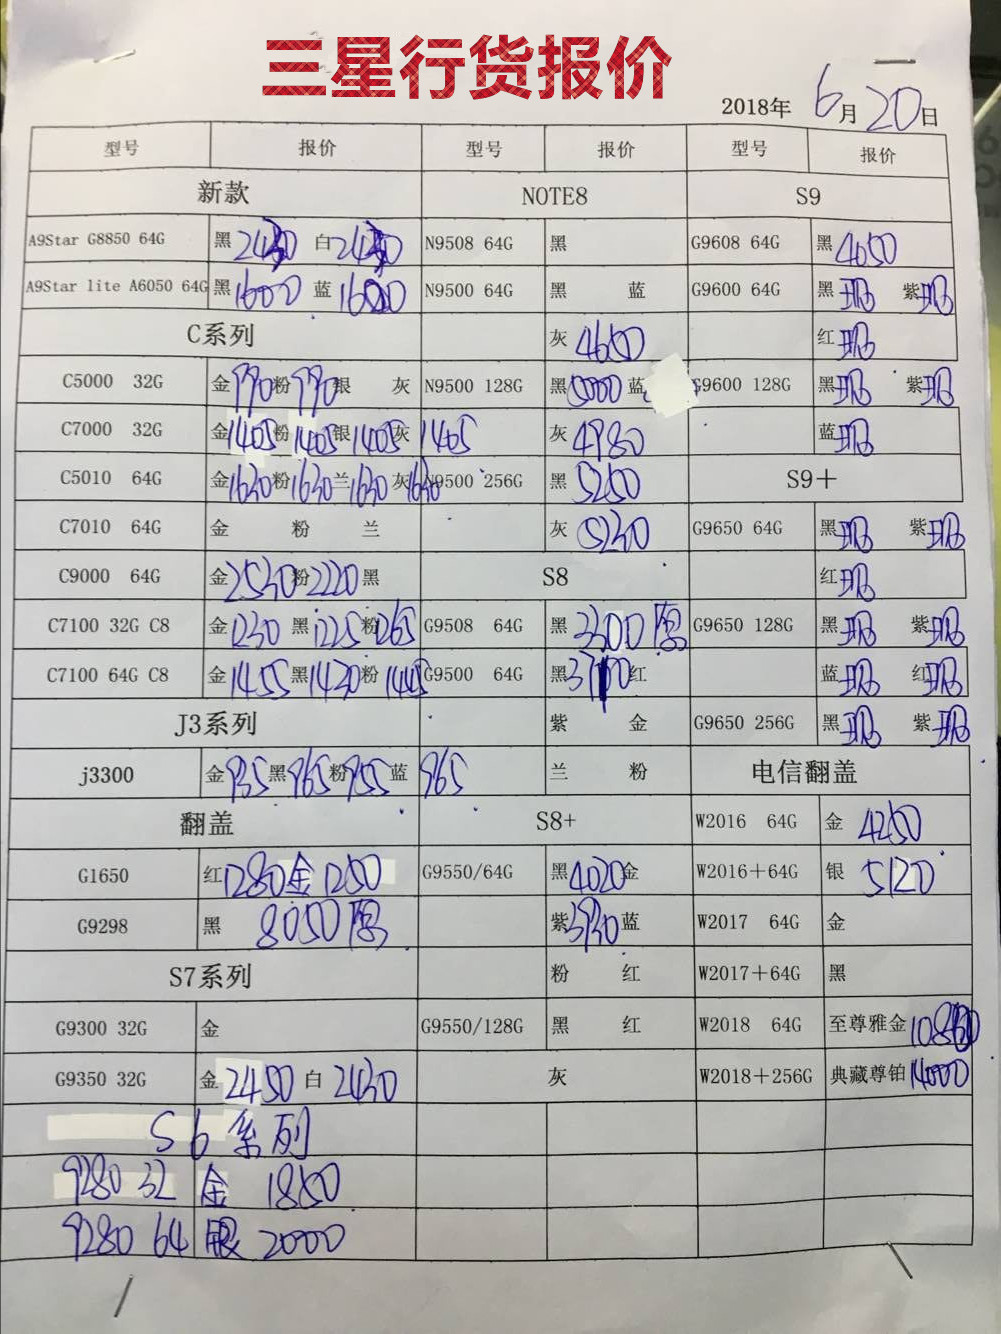 三星行货报价
2018年 6月20日
型号 报价 型号 报价 型号 报价
新款 NOTE8 S9
A9Star G8850 64G 黑 白 N9508 64G 黑 G9608 64G 黑4050
A9Star lite A6050 64G 黑1600 蓝 N9500 64G 黑 蓝 G9600 64G 黑现 紫现
C系列 灰4650 红现
C5000 32G 金990粉990银 灰 N9500 128G 黑5000蓝 G9600 128G 黑现 紫现
C7000 32G 金1405粉1405银1405灰1405 灰4980 蓝现
C5010 64G 金1630粉1630兰1630灰1630 N9500 256G 黑5250 S9+
C7010 64G 金 粉 兰 灰5230 G9650 64G 黑现 紫现
C9000 64G 金2530粉2220黑 S8 红现
C7100 32G C8 金1230 黑1225粉1265 G9508 64G 黑3300原 G9650 128G 黑现 紫现
C7100 64G C8 金1455黑1420粉1445 G9500 64G 黑 红 蓝现 红现
J3系列 紫 金 G9650 256G 黑现 紫现
j3300 金935黑965粉955蓝965 兰 粉 电信翻盖
翻盖 S8+ W2016 64G 金 4250
G1650 红1280金1250 G9550/64G 黑4020金 W2016+64G 银 5120
G9298 黑 8050原 紫3930蓝 W2017 64G 金
S7系列 粉 红 W2017+64G 黑
G9300 32G 金 G9550/128G 黑 红 W2018 64G 至尊雅金
G9350 32G 金2450 白2430 灰 W2018+256G 典藏尊铂14000
S6系列
9280 32 金 1850
9280 64 银 2000